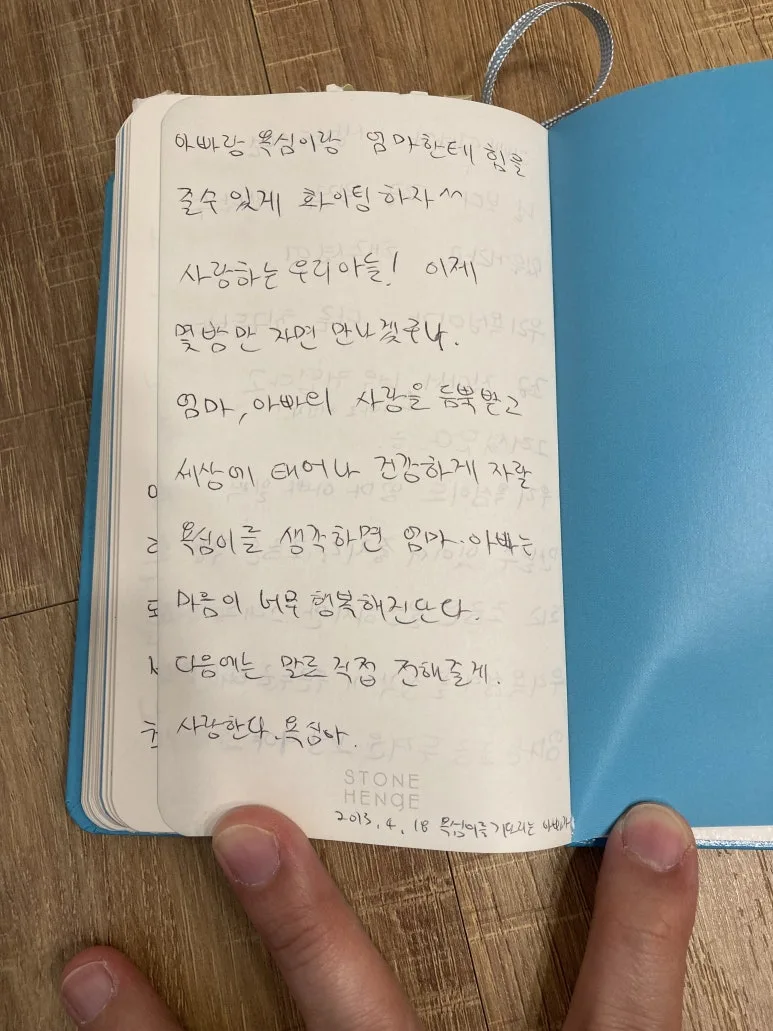 아빠랑 욕심이랑 엄마한테 힘을
줄수 있게 화이팅 하자^^
사랑하는 우리아들! 이제
몇밤만 자면 만나겠구나.
엄마, 아빠의 사랑을 듬뿍받고
세상에 태어나 건강하게 자랄
욕심이를 생각하면 엄마·아빠는
마음이 너무 행복해진단다.
다음에는 말로 직접 전해줄게.
사랑한다. 욕심아.
STONE
HENgE
2013. 4. 18 욕심이를 기다리는 아빠가